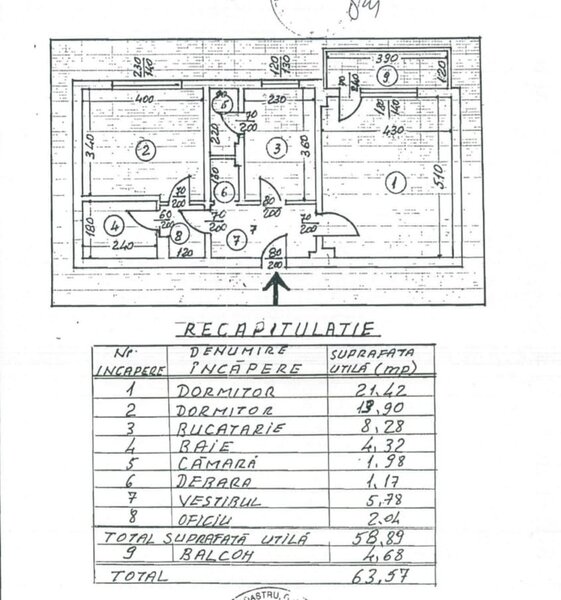 390
120
9
70
240
230
140
120
130
400
90
5
230
70
200
180
140
430
340
2
220
3
360
1
510
130
6
70
200
80
200
180
4
240
60
200
8
120
70
200
7
7
70
200
80
200
RECAPITULATIE
Nr. INCAPERE DENUMIRE ÎNCĂPERE SUPRAFATA UTILĂ (mp)
1 DORMITOR 21,42
2 DORMITOR 13,90
3 BUCATARIE 8,28
4 BAIE 4,32
5 CĂMARĂ 1,98
6 DEBARA 1,17
7 VESTIBUL 5,78
8 OFICIU 2,04
TOTAL SUPRAFATĂ UTILĂ 58,89
9 BALCON 4,68
TOTAL 63,57